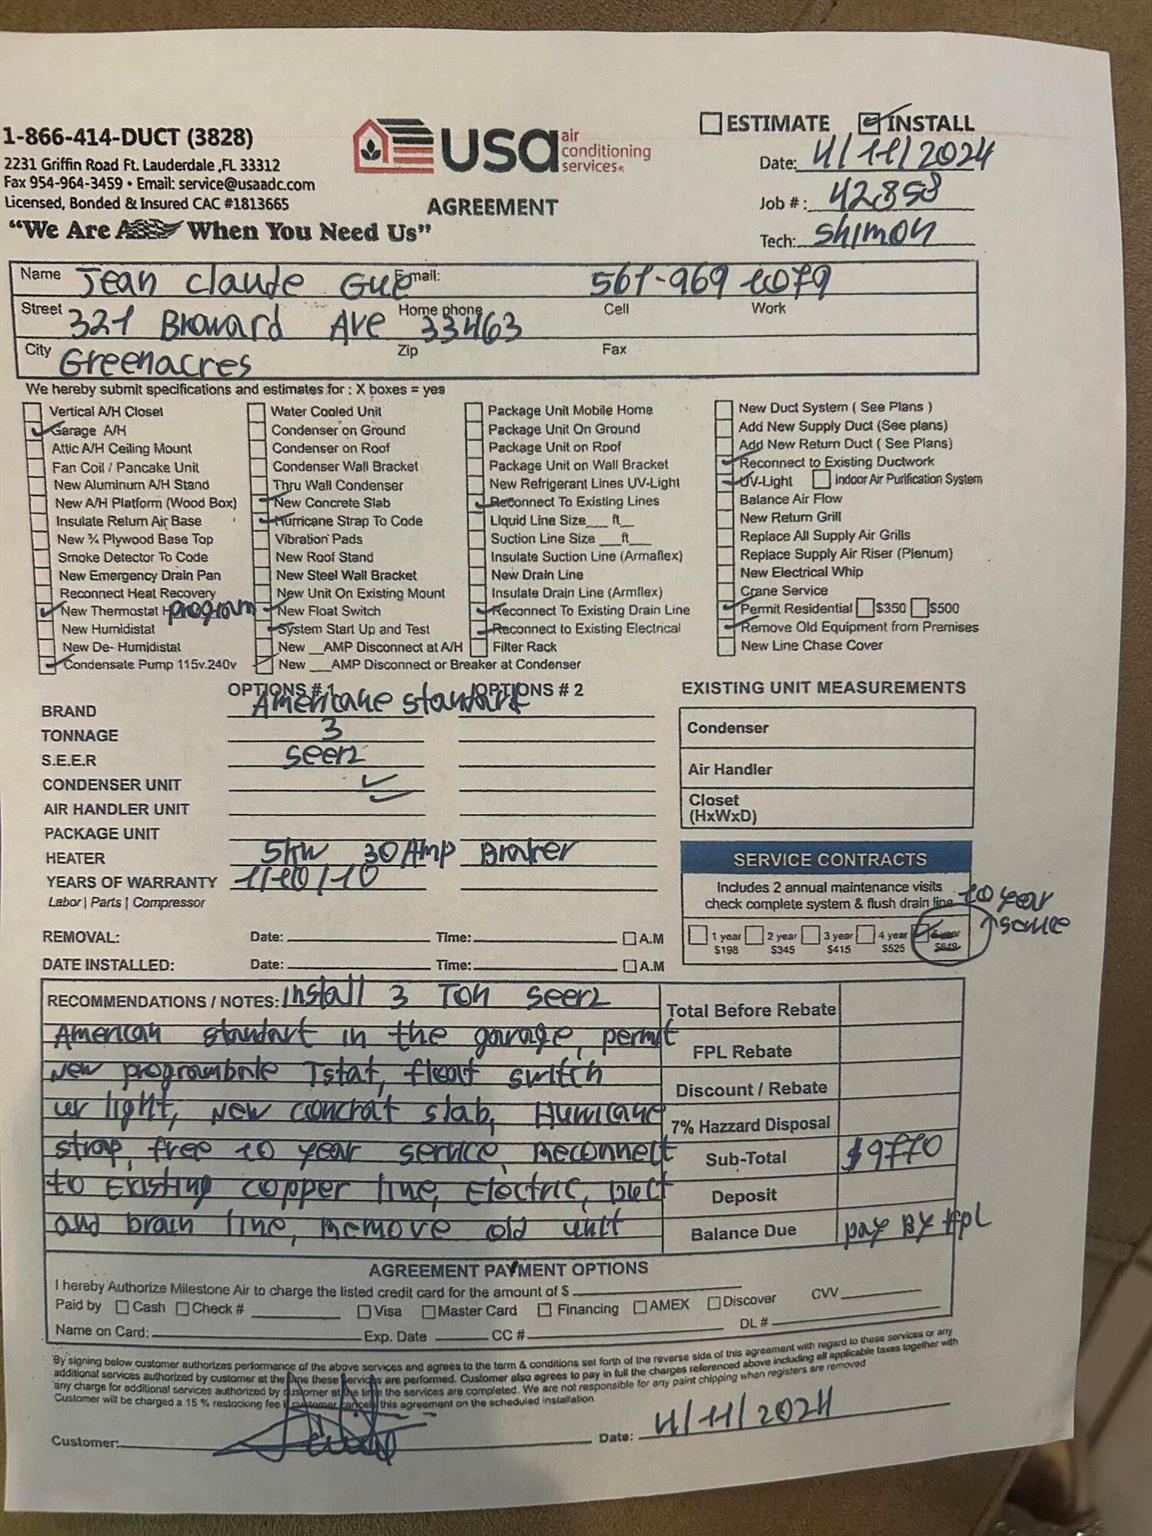 1-866-414-DUCT (3828)
2231 Griffin Road Ft. Lauderdale ,FL 33312
Fax 954-964-3459 • Email: service@usaadc.com
Licensed, Bonded & Insured CAC #1813665
"We Are When You Need Us"
usa air conditioning services
AGREEMENT
ESTIMATE INSTALL
Date: 4/11/2024
Job #: 42858
Tech: Shimon
Name Jean Claude Gue Email: 561-969 1079
Street 321 Broward Ave Home phone 33463 Cell Work
City Greenacres Zip Fax
We hereby submit specifications and estimates for : X boxes = yes
Vertical A/H Closet Water Cooled Unit Package Unit Mobile Home New Duct System ( See Plans )
Garage A/H Condenser on Ground Package Unit On Ground Add New Supply Duct (See plans)
Attic A/H Ceiling Mount Condenser on Roof Package Unit on Roof Add New Return Duct ( See Plans)
Fan Coil / Pancake Unit Condenser Wall Bracket Package Unit on Wall Bracket Reconnect to Existing Ductwork
New Aluminum A/H Stand Thru Wall Condenser New Refrigerant Lines UV-Light UV-Light Indoor Air Purification System
New A/H Platform (Wood Box) New Concrete Slab Reconnect To Existing Lines Balance Air Flow
Insulate Return Air Base Hurricane Strap To Code Liquid Line Size___ ft__ New Return Grill
New ¾ Plywood Base Top Vibration Pads Suction Line Size ___ft___ Replace All Supply Air Grills
Smoke Detector To Code New Roof Stand Insulate Suction Line (Armaflex) Replace Supply Air Riser (Plenum)
New Emergency Drain Pan New Steel Wall Bracket New Drain Line New Electrical Whip
Reconnect Heat Recovery New Unit On Existing Mount Insulate Drain Line (Armflex) Crane Service
New Thermostat program New Float Switch Reconnect To Existing Drain Line Permit Residential $350 $500
New Humidistat System Start Up and Test Reconnect to Existing Electrical Remove Old Equipment from Premises
New De- Humidistat New __AMP Disconnect at A/H Filter Rack New Line Chase Cover
Condensate Pump 115v.240v New ___AMP Disconnect or Breaker at Condenser
OPTIONS # 1 OPTIONS # 2 EXISTING UNIT MEASUREMENTS
BRAND Americane standart
TONNAGE 3 Condenser
S.E.E.R Seer2
CONDENSER UNIT Air Handler
AIR HANDLER UNIT Closet (HxWxD)
PACKAGE UNIT
HEATER 5kw 30 Amp Braker SERVICE CONTRACTS
YEARS OF WARRANTY 1/10/10 Includes 2 annual maintenance visits
Labor | Parts | Compressor check complete system & flush drain line 10 year service
REMOVAL: Date: Time: A.M 1 year $198 2 year $345 3 year $415 4 year $525 5 year $649
DATE INSTALLED: Date: Time: A.M
RECOMMENDATIONS / NOTES: Install 3 Ton Seer2 Total Before Rebate
American standart in the garage, permit FPL Rebate
New programbale Tstat, float switch Discount / Rebate
uv light, New concrat slab, Hurricane 7% Hazzard Disposal
strap, free 10 year service, Reconnect Sub-Total $9770
to Existing copper line, Electric, Duct Deposit
and brain line, Remove old unit Balance Due pay By Fpl
AGREEMENT PAYMENT OPTIONS
I hereby Authorize Milestone Air to charge the listed credit card for the amount of $
Paid by Cash Check # Visa Master Card Financing AMEX Discover CVV
Name on Card: Exp. Date CC # DL #
By signing below customer authorizes performance of the above services and agrees to the term & conditions set forth of the reverse side of this agreement with regard to these services or any
additional services authorized by customer at the time these services are performed. Customer also agrees to pay in full the charges referenced above including all applicable taxes together with
any charge for additional services authorized by customer at the time the services are completed. We are not responsible for any paint chipping when registers are removed
Customer will be charged a 15 % restocking fee if customer cancels this agreement on the scheduled installation
Customer: Date: 4/11/2024